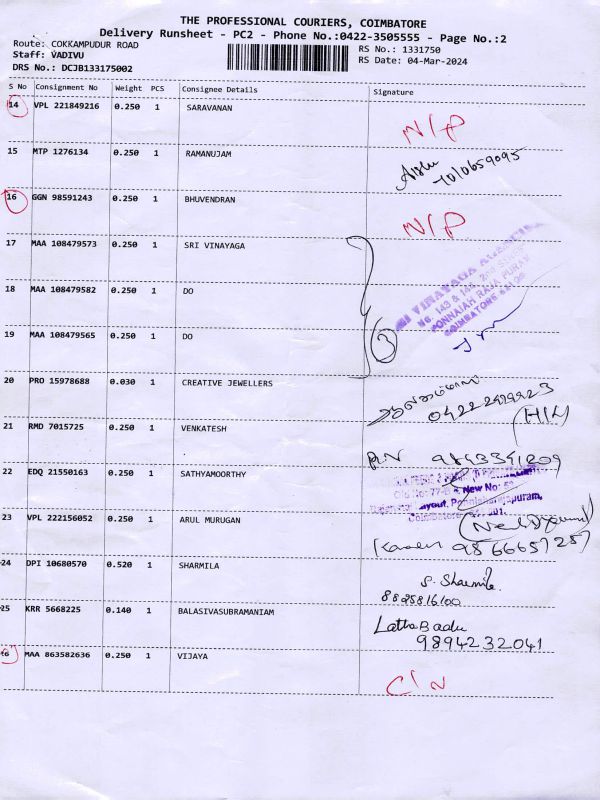 THE PROFESSIONAL COURIERS, COIMBATORE
Delivery Runsheet - PC2 - Phone No.:0422-3505555 - Page No.:2
Route: COKKAMPUDUR ROAD
Staff: VADIVU
DRS No.: DCJB133175002
RS No.: 1331750
RS Date: 04-Mar-2024
S No Consignment No Weight PCS Consignee Details Signature
14 VPL 221849216 0.250 1 SARAVANAN N/P
15 MTP 1276134 0.250 1 RAMANUJAM
16 GGN 98591243 0.250 1 BHUVENDRAN N/P
17 MAA 108479573 0.250 1 SRI VINAYAGA
18 MAA 108479582 0.250 1 DO
19 MAA 108479565 0.250 1 DO 3
SRI VINAYAGA
No. 143 &
PONNAIAH RAJA PURAM
COIMBATORE
20 PRO 15978688 0.030 1 CREATIVE JEWELLERS
21 RMD 7015725 0.250 1 VENKATESH 9843341209
22 EDQ 21550163 0.250 1 SATHYAMOORTHY
New No:
Layout, Ponnaiahrajapuram,
23 VPL 222156052 0.250 1 ARUL MURUGAN
24 DPI 10680570 0.520 1 SHARMILA S. Sharmila
8825816100
25 KRR 5668225 0.140 1 BALASIVASUBRAMANIAM Latha Badu
9894232041
26 MAA 863582636 0.250 1 VIJAYA C/N